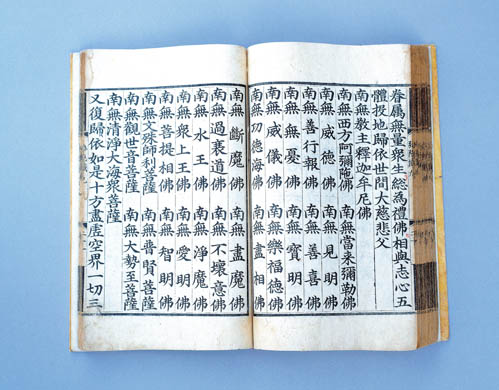 眷屬無量衆生總為禮佛相與志心五
體投地歸依世間大慈悲父
南無教主釋迦牟尼佛
南無西方阿彌陁佛 南無當來彌勒佛
南無威德佛 南無見明佛
南無善行報佛 南無善喜佛
南無無憂佛 南無寶明佛
南無威儀佛 南無樂福德佛
南無功德海佛 南無盡相佛
南無斷魔佛 南無盡魔佛
南無過衰道佛 南無不壞意佛
南無水王佛 南無淨魔佛
南無衆上王佛 南無愛明佛
南無菩提相佛 南無智明佛
南無文殊師利菩薩 南無普賢菩薩
南無觀世音菩薩 南無大勢至菩薩
南無清淨大海衆菩薩
又復歸依如是十方盡虛空界一切三